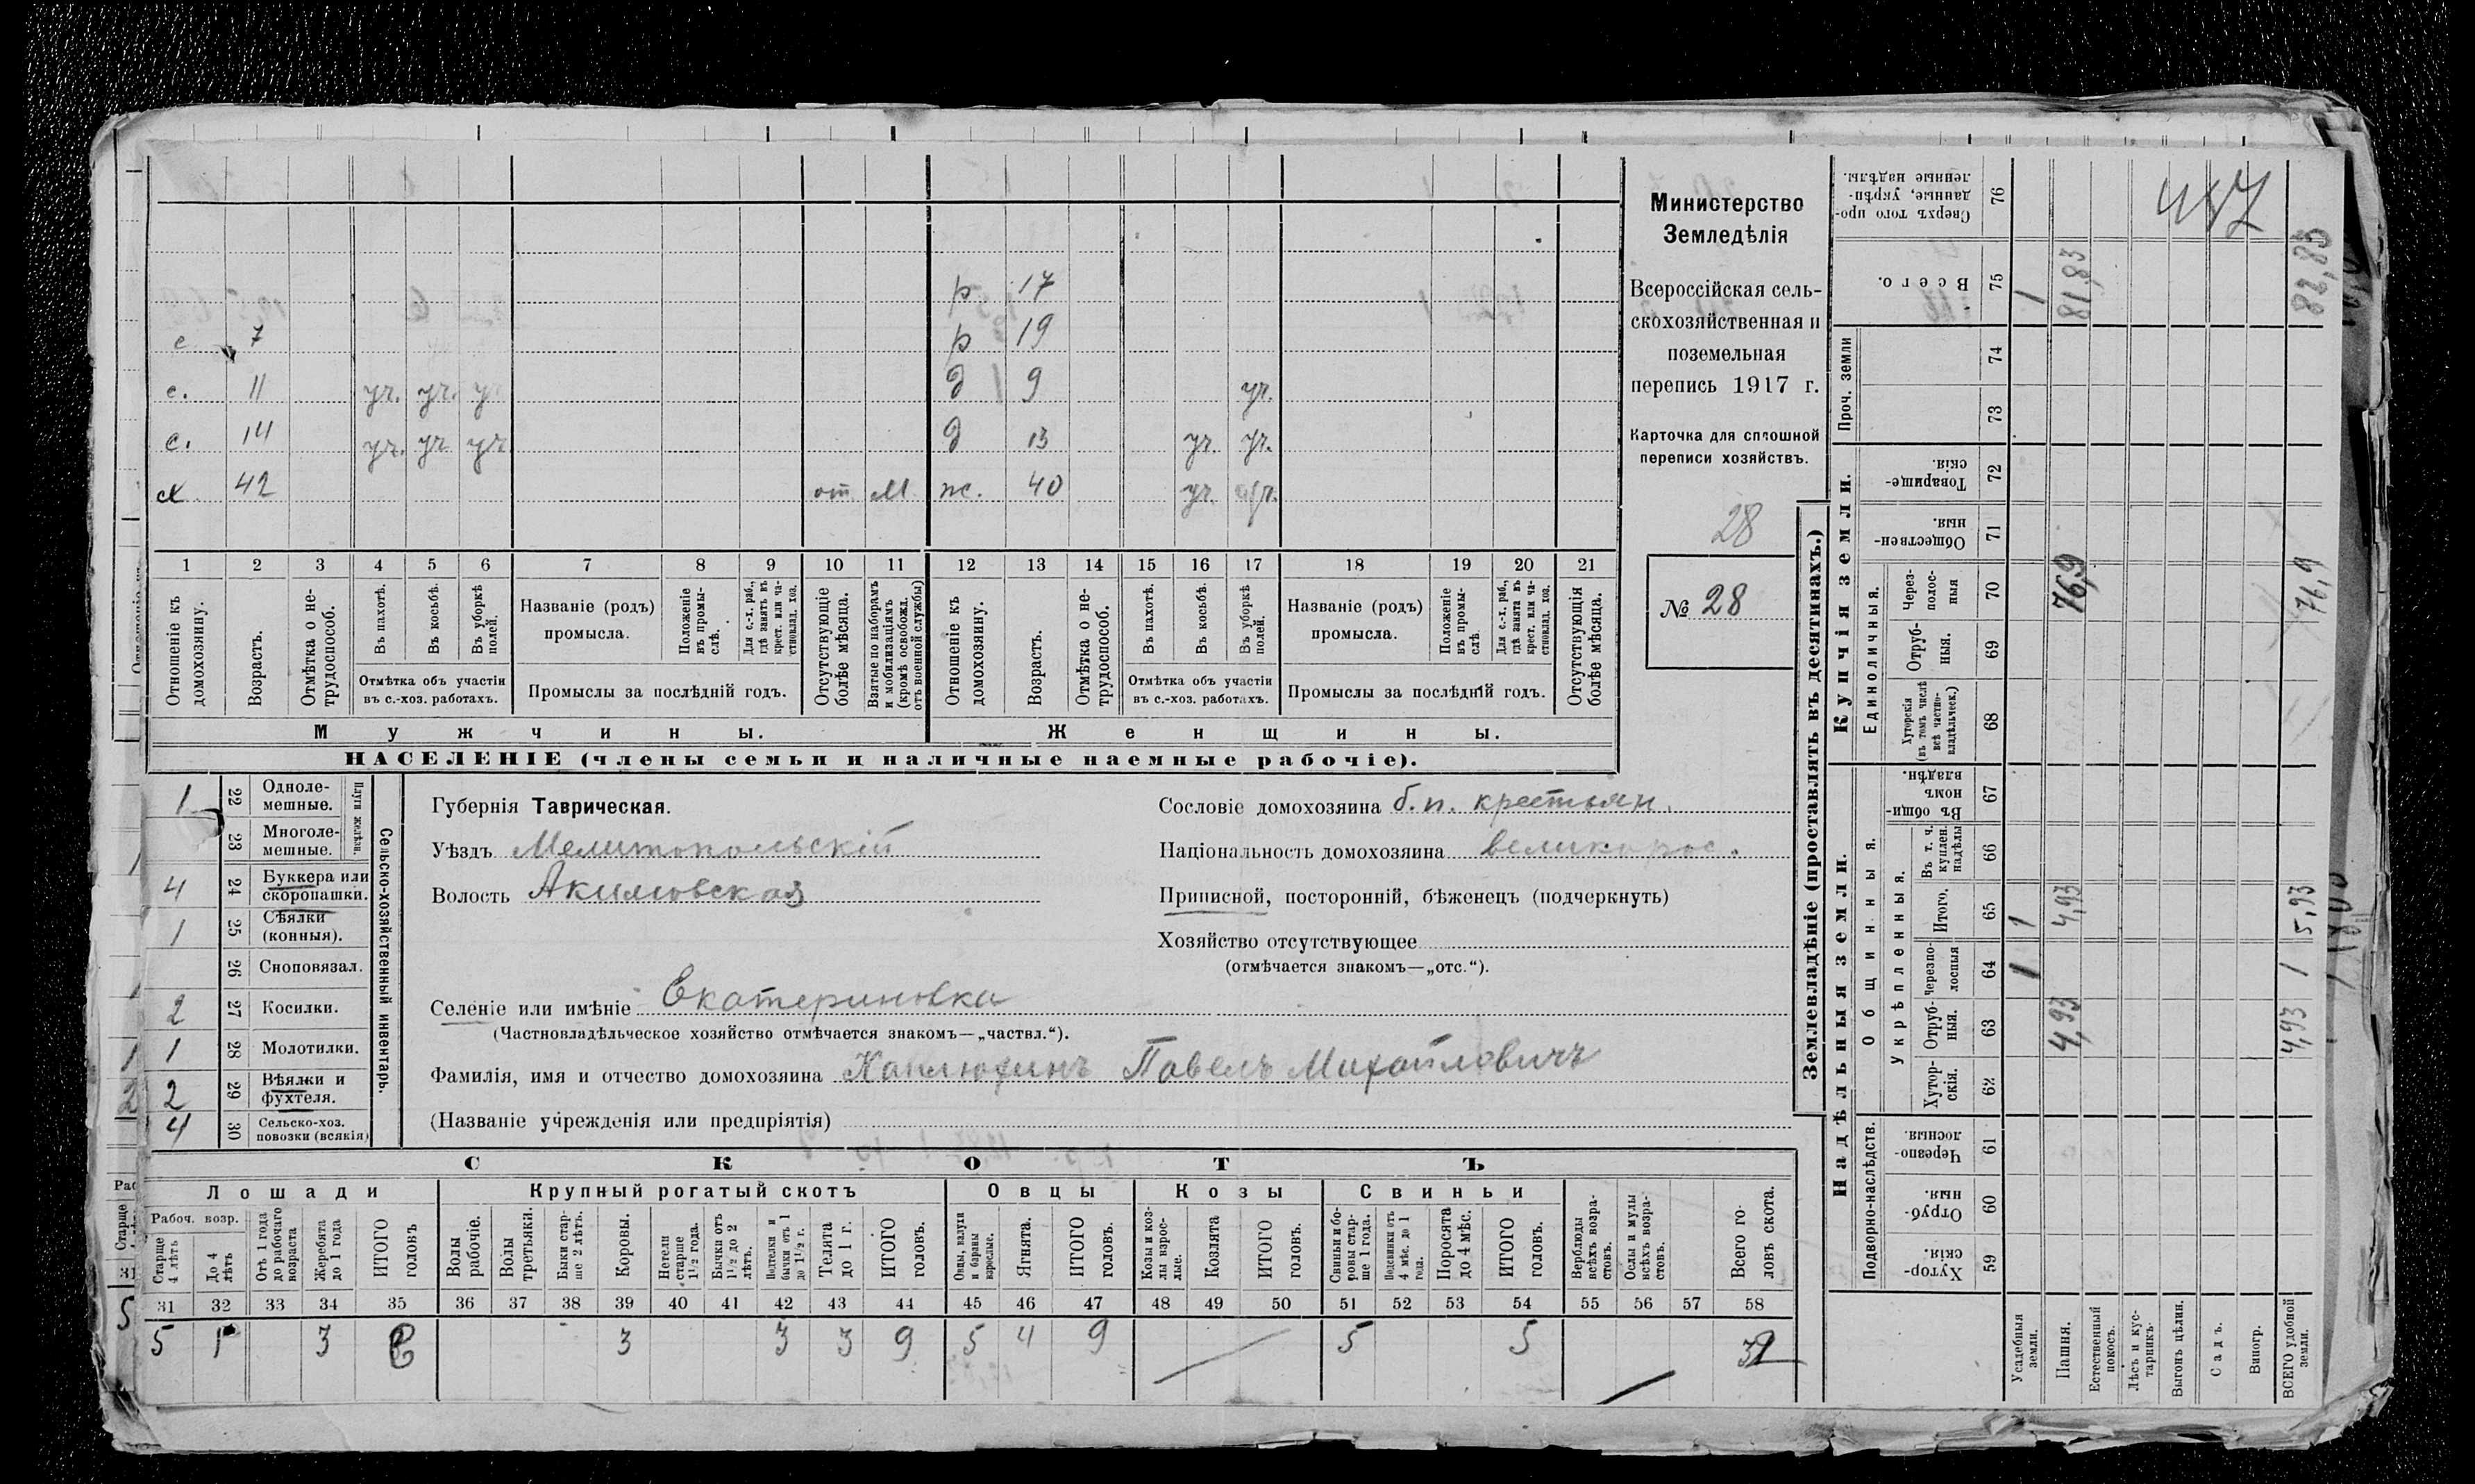 р 17
с 7 р 19
с. 11 уч. уч. у д 9 уч.
с. 14 уч. уч уч д 13 уч. уч.
х 42 от М ж. 40 уч.
1 2 3 4 5 6 7 8 9 10 11 12 13 14 15 16 17 18 19 20 21
Отношеніе къ домохозяину.
Возрастъ.
Отмѣтка о не-
трудоспособ.
Въ пахотѣ.
Въ косьбѣ.
Въ уборкѣ
полей.
Отмѣтка объ участіи
въ с.-хоз. работахъ.
Названіе (родъ)
промысла.
Положеніе
въ промы-
слѣ.
Для с.-х. раб.,
гдѣ занятъ въ
крест. или ча-
стновлад. хоз.
Промыслы за послѣдній годъ.
Отсутствующіе
болѣе мѣсяца.
Взятые по наборамъ
и мобилизаціямъ
(кромѣ освобожд.
отъ военной службы)
Отношеніе къ
домохозяину.
Возрастъ.
Отмѣтка о не-
трудоспособ.
Въ пахотѣ.
Въ косьбѣ.
Въ уборкѣ
полей.
Отмѣтка объ участіи
въ с.-хоз. работахъ.
Названіе (родъ)
промысла.
Положеніе
въ промы-
слѣ.
Для с.-х. раб.,
гдѣ занята въ
крест. или ча-
стновлад. хоз.
Промыслы за послѣдній годъ.
Отсутствующія
болѣе мѣсяца.
Мужчины. Женщины.
НАСЕЛЕНІЕ (члены семьи и наличные наемные рабочіе).
Министерство
Земледѣлія
Всероссійская сель-
скохозяйственная и
поземельная
перепись 1917 г.
Карточка для сплошной
переписи хозяйствъ.
28
№ 28
1 22 Одноле-
мешные.
23 Многоле-
мешные.
Плуги желѣзн.
4 24 Буккера или
скоропашки.
1 25 Сѣялки
(конныя).
26 Сноповязал.
2 27 Косилки.
1 28 Молотилки.
2 29 Вѣялки и
фухтеля.
4 30 Сельско-хоз.
повозки (всякія)
Сельско-хозяйственный инвентарь.
Губернія Таврическая.
Уѣздъ Мелитопольскій
Волость Акимовская
Сословіе домохозяина б.п. крестьян.
Національность домохозяина великорос.
Приписной, посторонній, бѣженецъ (подчеркнуть)
Хозяйство отсутствующее
(отмѣчается знакомъ—„отс.“).
Селеніе или имѣніе Екатериновка
(Частновладѣльческое хозяйство отмѣчается знакомъ—„частвл.“).
Фамилія, имя и отчество домохозяина Каплюхинъ Павелъ Михайловичъ
(Названіе учрежденія или предпріятія)
СКОТЪ
Лошади Крупный рогатый скотъ Овцы Козы Свиньи
Рабоч. возр.
Старше
4 лѣтъ
До 4
лѣтъ
Отъ 1 года
до рабочаго
возраста
Жеребята
до 1 года
ИТОГО
головъ
Волы
рабочіе.
Волы
третьяки.
Быки стар-
ше 2 лѣтъ.
Коровы.
Нетели
старше
1½ года.
Бычки отъ
1½ до 2
лѣтъ.
Подтелки и
бычки отъ 1
до 1½ г.
Телята
до 1 г.
ИТОГО
головъ.
Овцы, валухи
и бараны
взрослые.
Ягнята.
ИТОГО
головъ.
Козы и коз-
лы взрос-
лые.
Козлята
ИТОГО
головъ.
Свиньи и бо-
ровы стар-
ше 1 года.
Подсвинки отъ
4 мѣс. до 1
года.
Поросята
до 4 мѣс.
ИТОГО
головъ.
Верблюды
всѣхъ возра-
стовъ.
Ослы и мулы
всѣхъ возра-
стовъ.
Всего го-
ловъ скота.
31 32 33 34 35 36 37 38 39 40 41 42 43 44 45 46 47 48 49 50 51 52 53 54 55 56 57 58
5 1 3 3 3 3 9 5 4 9 5 5
Землевладѣніе (проставлять въ десятинахъ.)
Надѣльныя земли. Купчія земли.
Подворно-наслѣдств.
Общинныя.
Укрѣпленныя.
Единоличныя.
Проч. земли
Хутор-
скія. 59
Отруб-
ныя. 60
Черезпо-
лосныя. 61
Хутор-
скія. 62
Отруб-
ныя. 63
Черезпо-
лосныя 64
Итого. 65
Въ т. ч.
куплен.
надѣлы 66
Въ общин-
номъ
владѣн. 67
Хуторскія
(въ томъ числѣ
всѣ частно-
владѣльческ.) 68
Отруб-
ныя. 69
Через-
полос-
ныя 70
Обществен-
ныя. 71
Товарище-
скія. 72
73
74
Всего. 75
Сверхъ того про-
данные, укрѣп-
ленные надѣлы. 76
Усадебныя
земли. 1 1 1
Пашня. 4,93 4,93 76,9 81,83
Естественный
покосъ.
Лѣсъ и кус-
тарникъ.
Выгонъ цѣлин.
Садъ.
Виногр.
ВСЕГО удобной
земли. 4,93 1 5,93 76,9 82,83